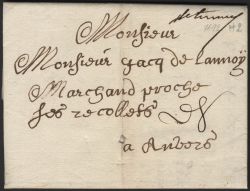 Monsieur
Monsieur Jacq de Lannoÿ
Marchand proche
les recollets
a Anvers